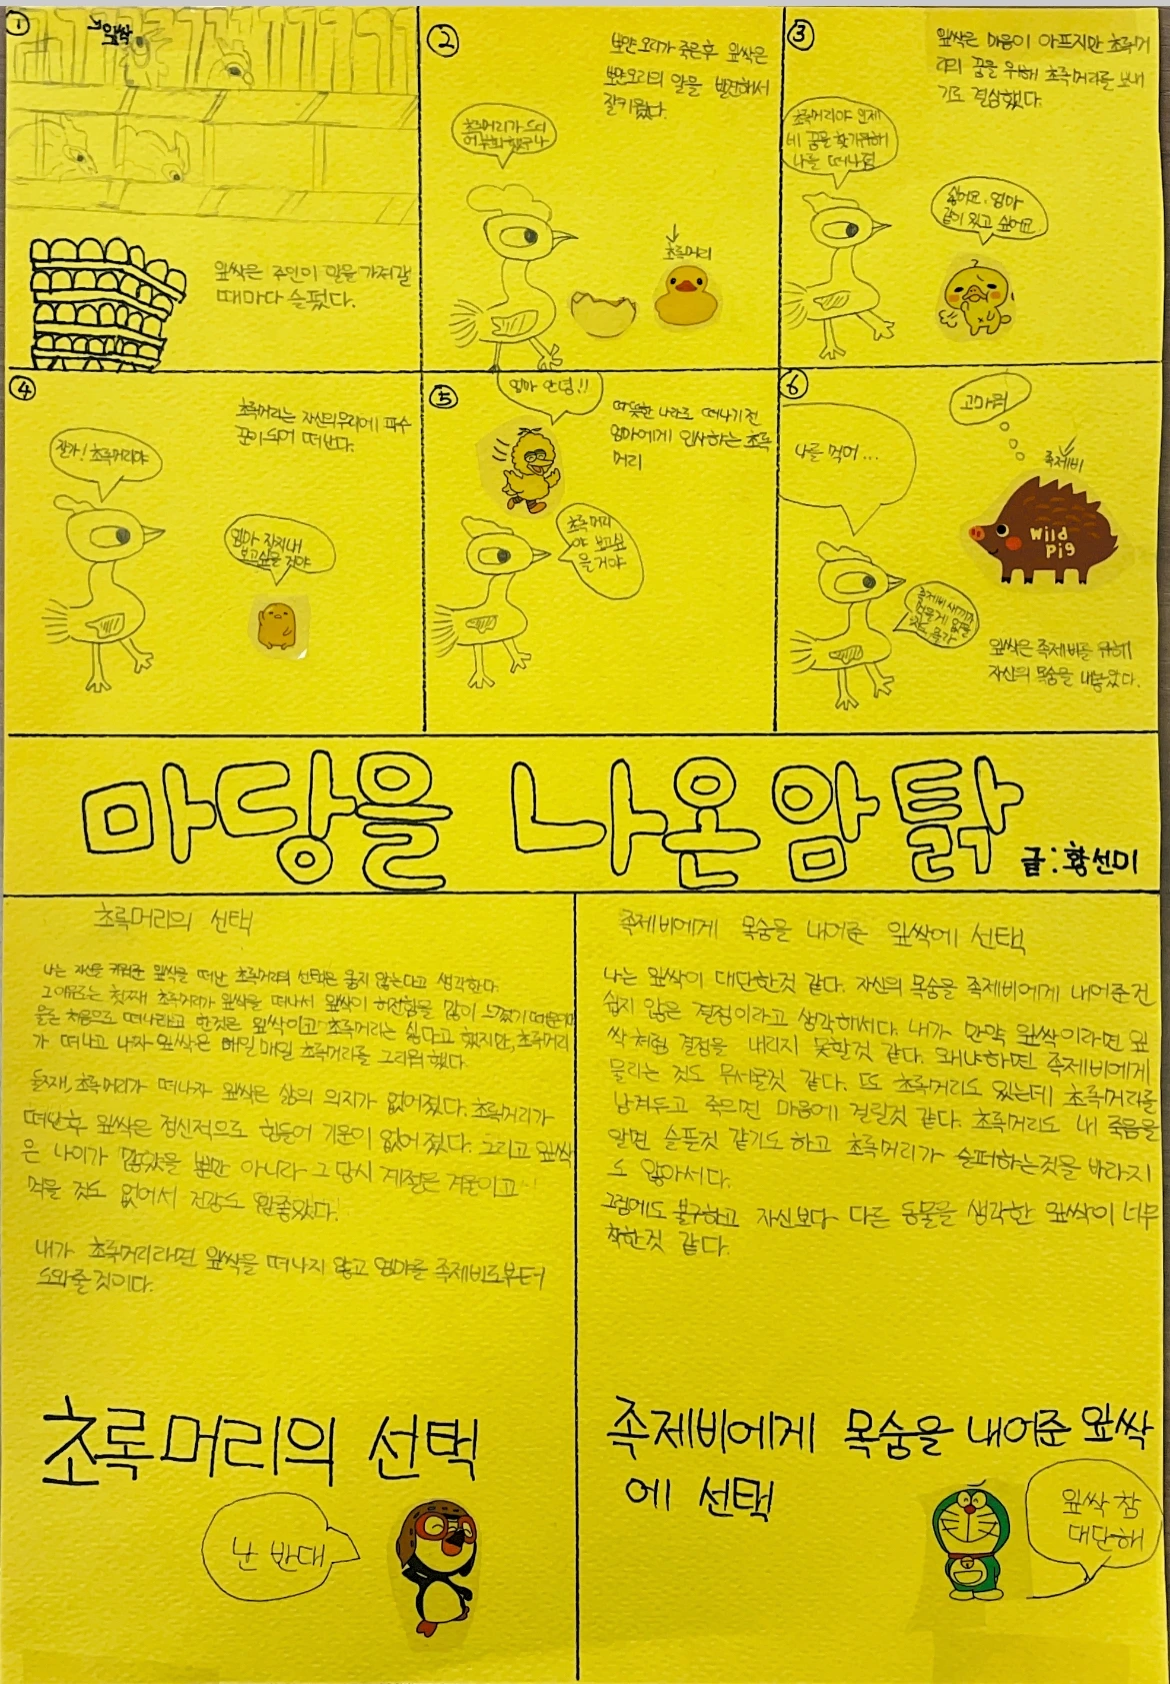 ①
잎싹
잎싹은 주인이 알을 가져갈
때마다 슬펐다.
②
뽀얀 오리가 죽은후 잎싹은
뽀얀오리의 알을 발견해서
잘키웠다.
초록머리가 드디
어 부화 했구나
초록머리
③
잎싹은 마음이 아프지만 초록머
리의 꿈을 위해 초록머리를 보내
기로 결심했다.
초록머리야 언제
네 꿈을 찾기위해
나를 떠나렴
싫어요. 엄마
같이 있고 싶어요
④
초록머리는 자신의무리에 파수
꾼이되어 떠난다.
잘가! 초록머리야
엄마 잘지내
보고싶을 거야
⑤
엄마 안녕!!
따뜻한 나라로 떠나기 전
엄마에게 인사하는 초록
머리
초록머리
야 보고싶
을거야
6
고마워
나를 먹어...
족제비
Wild
Pig
족제비 새끼가
잎싹은 족제비를 위해
자신의 목숨을 내놓았다.
마당을 나온 암탉
글:황선미
초록머리의 선택
나는 자신을 키워준 잎싹을 떠난 초록머리의 선택은 옳지 않는다고 생각한다.
그이유는 첫째 초록머리가 잎싹을 떠나서 잎싹이 허전함을 많이 느꼈기 때문이다
물론 처음으로 떠나라고 한것은 잎싹이고 초록머리는 싫다고 했지만, 초록머리
가 떠나고 나자 잎싹은 매일 매일 초록머리를 그리워 했다.
둘째, 초록머리가 떠나자 잎싹은 삶의 의지가 없어졌다. 초록머리가
떠난후 잎싹은 정신적으로 힘들어 기운이 없어 졌다. 그리고 잎싹
은 나이가 많았을 뿐만 아니라 그 당시 계절은 겨울이고
먹을 것도 없어서 건강도 안좋았다.
내가 초록머리라면 잎싹을 떠나지 않고 엄마를 족제비로부터
도와줄 것이다.
초록머리의 선택
난 반대
족제비에게 목숨을 내어준 잎싹에 선택
나는 잎싹이 대단한것 같다. 자신의 목숨을 족제비에게 내어준건
쉽지 않은 결정이라고 생각해서다. 내가 만약 잎싹이라면 잎
싹처럼 결정을 내리지 못할것 같다. 왜냐하면 족제비에게
물리는 것도 무서울것 같다. 또 초록머리도 있는데 초록머리를
남겨두고 죽으면 마음에 걸릴것 같다. 초록머리도 내 죽음을
알면 슬플것 같기도 하고 초록머리가 슬퍼하는것을 바라지
도 않아서다.
그럼에도 불구하고 자신보다 다른 동물을 생각한 잎싹이 너무
착한것 같다.
족제비에게 목숨을 내어준 잎싹
에 선택
잎싹 참
대단해